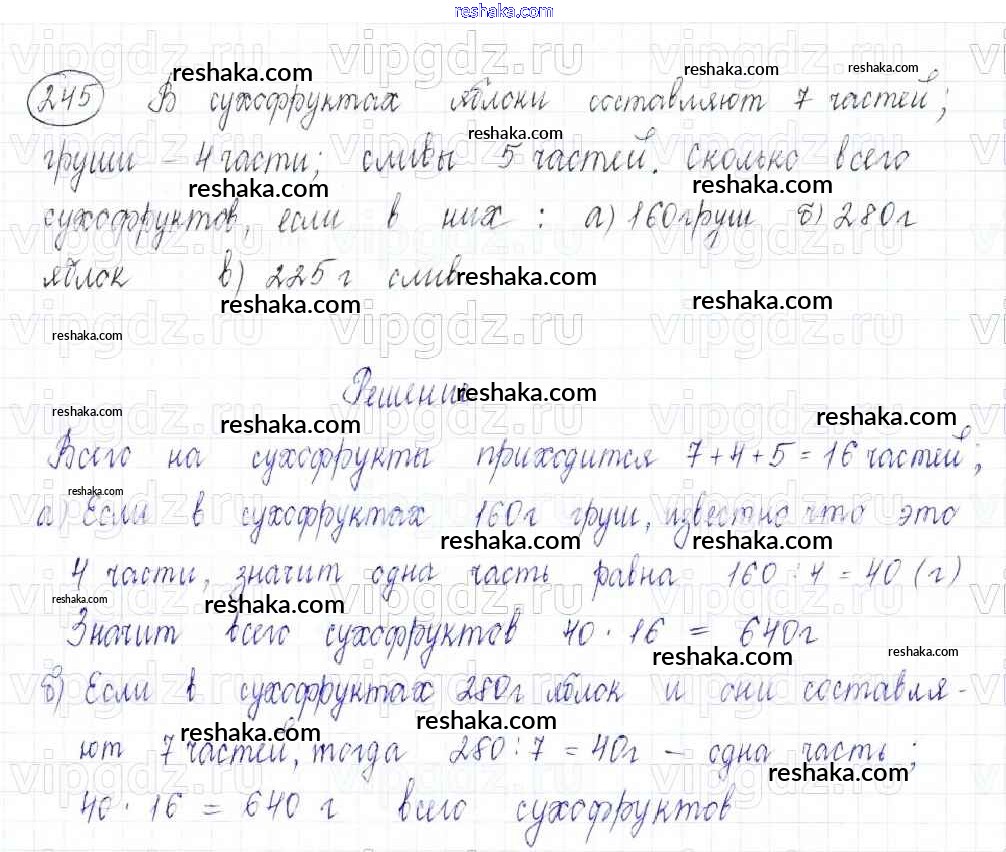 reshaka.com
245 В сухофруктах яблоки составляют 7 частей;
груши – 4 части; сливы 5 частей. Сколько всего
сухофруктов, если в них : а) 160 груш б) 280г
яблок в) 225 г слив
Решение
Всего на сухофрукты приходится 7 + 4 + 5 = 16 частей;
а) Если в сухофруктах 160г груш, известно что это
4 части, значит одна часть равна 160 : 4 = 40 (г)
Значит всего сухофруктов 40 · 16 = 640г
б) Если в сухофруктах 280г яблок и они составля-
ют 7 частей, тогда 280 : 7 = 40г – одна часть;
40 · 16 = 640 г всего сухофруктов
vipgdz.ru